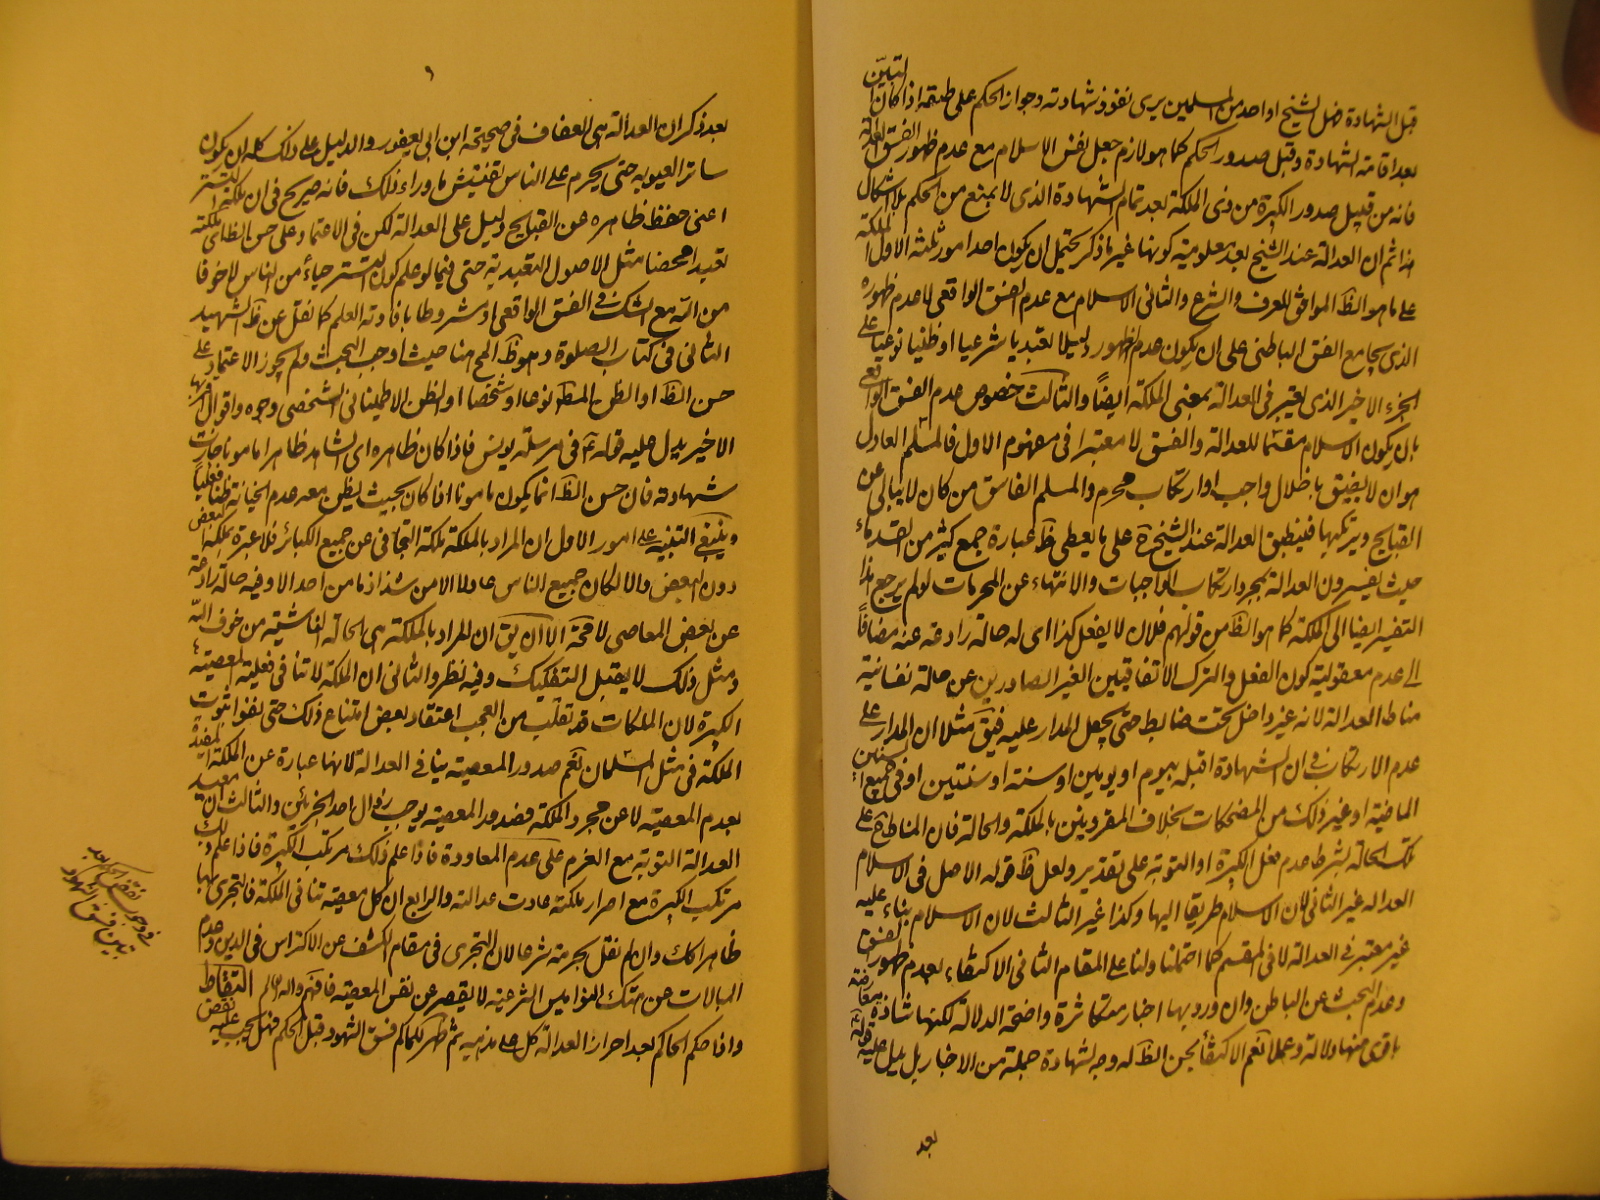 قبل الشهادة فسل الشيخ او احد من المسلمين يرى نفوذ شهادته وجواز الحكم على طبقه اذا كان التبيّن
بعد اقامة الشهادة وقبل صدور الحكم كما هو لازم جعل نفس الاسلام مع عدم ظهور الفسق العدالة
فانه من قبيل صدور الكبيرة من ذى الملكة بعد تمام الشهادة الذى لا يمنع من الحكم بلا اشكال
هذا ثم ان العدالة عند الشيخ بعد معلومية كونها غير ما ذكر يحتمل ان يكون احد امور ثلثة الاول الملكة
على ما هو الظ الموافق للعرف والشرع والثانى الاسلام مع عدم الفسق الواقعى لا عدم ظهوره
الذى يجامع الفسق الباطنى على ان يكون عدم الظهور دليلا تعبديا شرعيا او ظنيا نوعيا على
الجزء الاخير الذى يعتبر فى العدالة بمعنى الملكة ايضًا والثالث خصوص عدم الفسق الواقعى
بان يكون الاسلام مقسما للعدالة والفسق لا معتبرا فى مفهوم الاول فالمسلم العادل
هو ان لا يفسق باخلال واجب او ارتكاب محرم والمسلم الفاسق من كان لا يبالى عن
القبايح ويرتكبها فينطبق العدالة عند الشيخ ره على ما يعطى ظ عبارة جمع كثير من القدماء
حيث يفسرون العدالة بمجرد ارتكاب الواجبات والانتهاء عن المحرمات لو لم يرجع هذا
التفسير ايضا الى الملكة كما هو الظ من قولهم فلان لا يفعل كذا اى له حالة رادعة عنه مضافًا
الى عدم معقولية كون الفعل والترك الاتفاقيين الغير الصادرين عن حالة نفسانية
مناط العدالة لانه غير داخل تحت ضابط حتى يجعل المدار عليه فيق مثلا ان المدار على
عدم الارتكاب فى ان الشهادة او قبله بيوم او يومين او سنة او سنتين او فى جميع السنين
الماضية او غير ذلك من المضحكات بخلاف المقرونين بالملكة والحالة فان المناط ح على
تلك الحالة بشرط عدم فعل الكبيرة او التوبة على تقديره ولعل ظ قوله الاصل فى الاسلام
العدالة غير الثانى لان الاسلام طريقا اليها وكذا غير الثالث لان الاسلام بناء عليه
غير معتبر فى العدالة لا فى المقسم كما احتملنا ولنا على المقام الثانى الاكتفاء بعدم ظهور الفسق
وعدم البحث عن الباطن وان ورد بها اخبار متكاثرة واضحة الدلالة لكنها شاذة بمعارضة
باقوى منها دلالة وعملا نعم الاكتفاء بحسن الظ له وجه لشهادة جملة من الاخبار بل يدل عليه قوله ع
بعد
٦
بعد ذكر ان العدالة هى العفاف فى صحيحة ابن ابى يعفور والدليل على ذلك كله ان يكون
ساترا لعيوبه حتى يحرم على الناس تفتيش ما وراء ذلك فانه صريح فى ان ملكة التستر
اعنى حفظ ظاهره عن القبايح دليل على العدالة لكن فى الاعتماد على حسن الظاهر للملكة
تعبدا محضا مثل الاصول التعبدية حتى فيما لو علم كون التستر حياءً من الناس لا خوفا
من الله مع الشك فى الفسق الواقعى او مشروطا بافادته العلم كما نقل عن ظ الشهيد
الثانى فى كتاب الصلوة وهو ظ المح هنا حيث اوجب البحث ولم يجوز الاعتماد على
حسن الظ او الظن المط نوعا او شخصا او الظن الاطمينانى الشخصى وجوه واقوال اقربها
الاخير يدل عليه قوله ع فى مرسلة يونس فاذا كان ظاهره اى الشاهد ظاهرا مامونا جازت
شهادته فان حسن الظ انما يكون مامونا اذا كان بحيث يظن معه عدم الخيانة ظنا فعليا
وينبغى التنبيه على امور الاول ان المراد بالملكة ملكة التجافى عن جميع الكبائر فلا عبرة بملكة البعض
دون البعض والا لكان جميع الناس عادلا الا من شذ اذ ما من احد الا وفيه حالة رادعة
عن بعض المعاصى لا محة الا ان يق ان المراد بالملكة هى الحالة الناشئة من خوف الله
ومثل ذلك لا يقبل التفكيك وفيه نظر والثانى ان الملكة لا تنافى فعلية المعصية
الكبيرة لان الملكات قد تغلب من العجب اعتقاد بعض امتناع ذلك حتى نفوا ثبوت
الملكة فى مثل السلمان نعم صدور المعصية ينافى العدالة لانها عبارة عن الملكة المقيدة
بعدم المعصية لا عن مجرد الملكة فصدور المعصية يوجب زوال احد الجزئين والثالث انه يعيد
العدالة التوبة مع العزم على عدم المعاودة فاذا علم ذلك مرتكب الكبيرة فاذا علم ذلك
مرتكب الكبيرة مع احراز ملكته عادت عدالته والرابع ان كل معصية تنافى الملكة فالتجرى بها
ظاهرا كك وان لم نقل بحرمته شرعا لان التجرى فى مقام الكشف عن الاكتراث فى الدين وعدم
المبالات عن هتك النواميس الشرعية لا يقصر عن نفس المعصية فافهم والله العالم التقاط
واذا حكم الحاكم بعد احراز العدالة كل على مذهبه ثم ظهر للحاكم فسق الشهود قبل الحكم فهل يجب عليه نقض
فى وجوب نقض الحكم بعد
تبين فسق الشهود